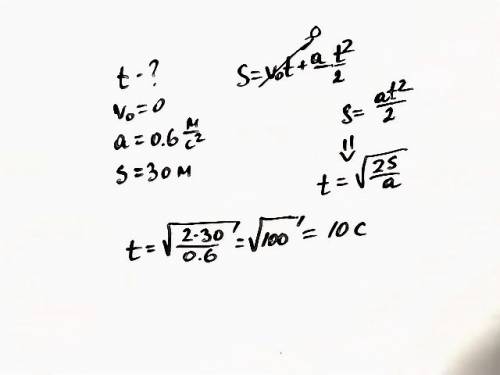 t - ?
v₀ = 0
a = 0.6 м/с²
s = 30 м
S = v₀t + at²/2
0
s = at²/2
⇓
t = √(2s/a)
t = √(2·30/0.6) = √100 = 10 с